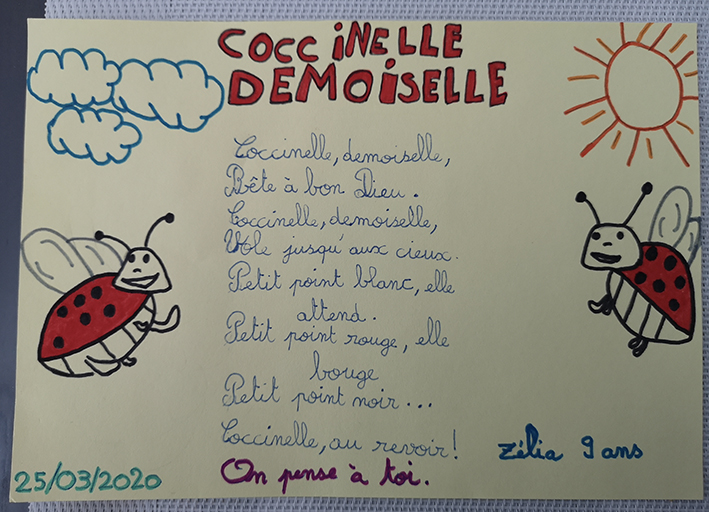 COCCINELLE
DEMOISELLE
Coccinelle, demoiselle,
Bête à bon Dieu.
Coccinelle, demoiselle,
Vole jusqu'aux cieux.
Petit point blanc, elle
attend.
Petit point rouge, elle
bouge
Petit point noir...
Coccinelle, au revoir!
Zélia 9 ans
On pense à toi.
25/03/2020